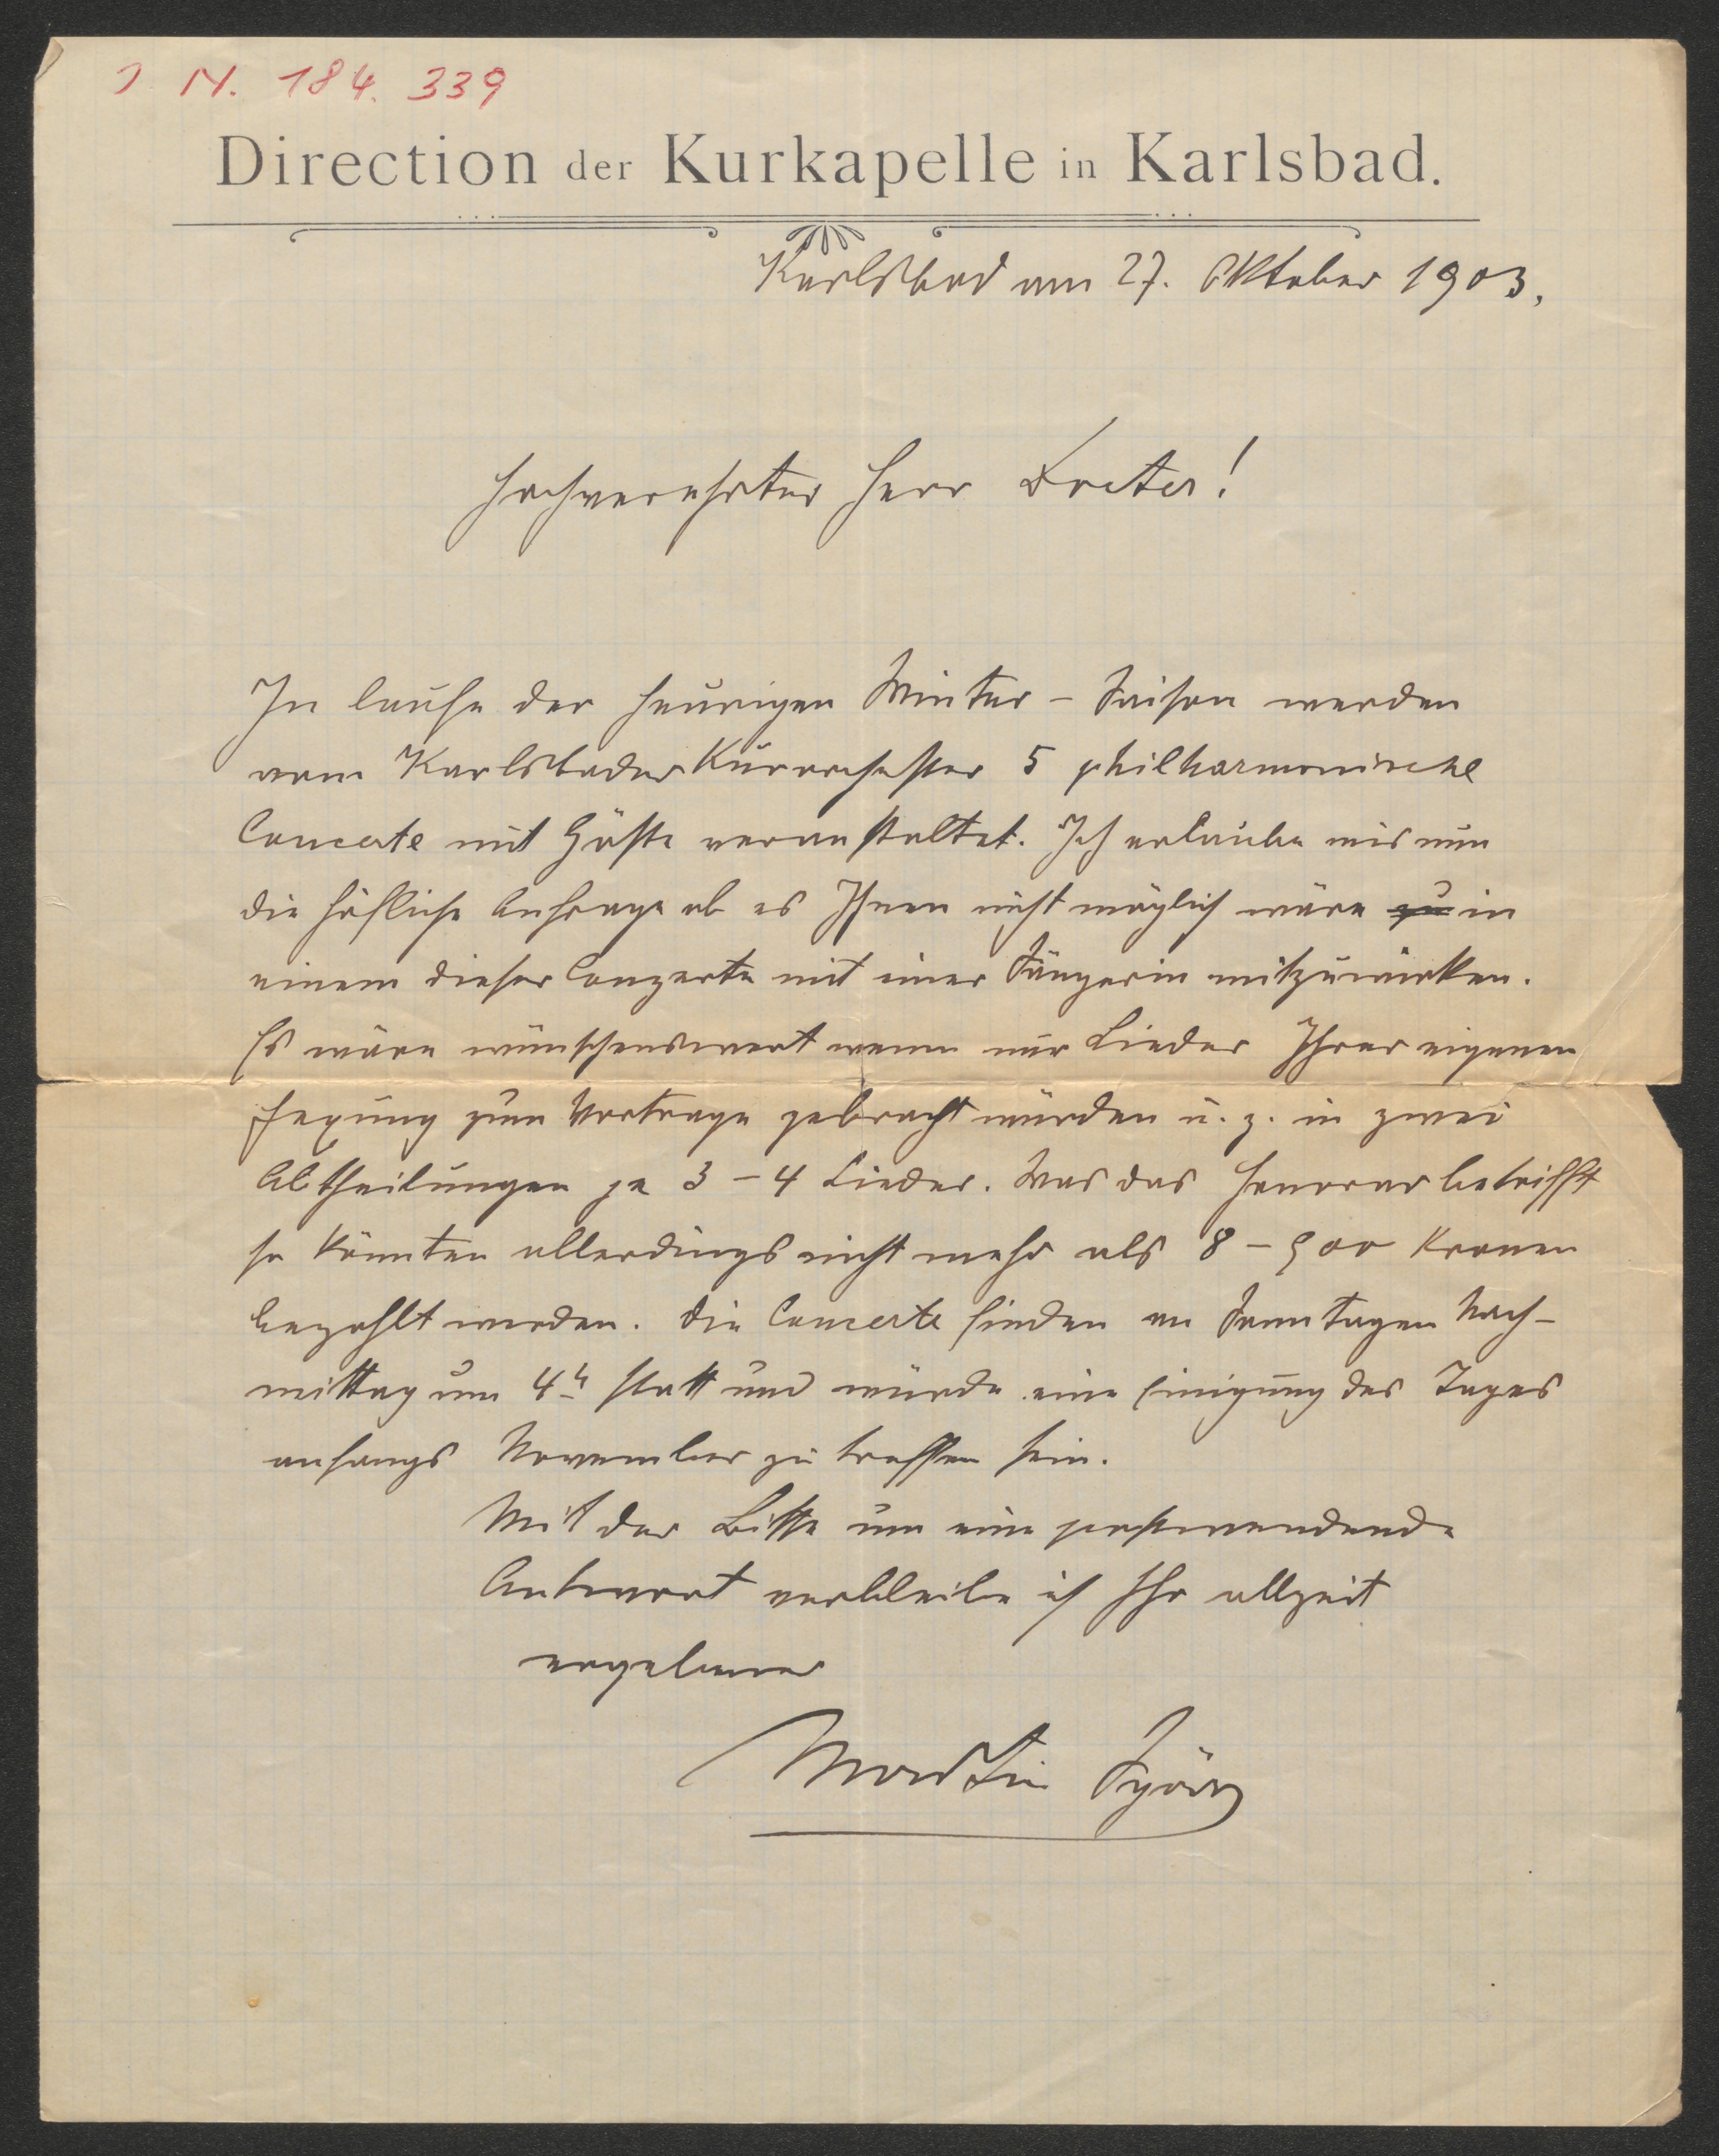 J. N. 184.339
Direction der Kurkapelle in Karlsbad.
Karlsbad am 27. Oktober 1903.
Hochverehrter Herr Doctor!
In laufe der heurigen Winter - Saison werden
vom Karlsbader Kurorchester 5 philharmonische
Concerte mit Gäste veranstaltet. Ich erlaube mir nun
die höfliche Anfrage ob es Ihnen nicht möglich wäre zu in
einem dieser Conzerte mit einer Sängerin mitzuwirken.
Es wäre wünschenswert wenn nur Lieder Ihrer eigenen
zum Vortrage gebracht würden u. z. in zwei
Abtheilungen je 3 - 4 Lieder. Was das Honorar betrifft
so könnten allerdings nicht mehr als 8 - 900 Kronen
bezahlt werden. Die Concerte finden an Sonntagen Nach-
mittag um 4h statt und würde eine Einigung des Tages
anfangs November zu treffen sein.
Mit der Bitte um eine postwendende
Antwort verbleibe ich Ihr allzeit
ergebener
Martin Spörr